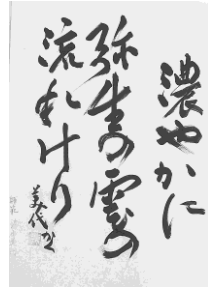 濃やかに
弥生の雲の
流れけり